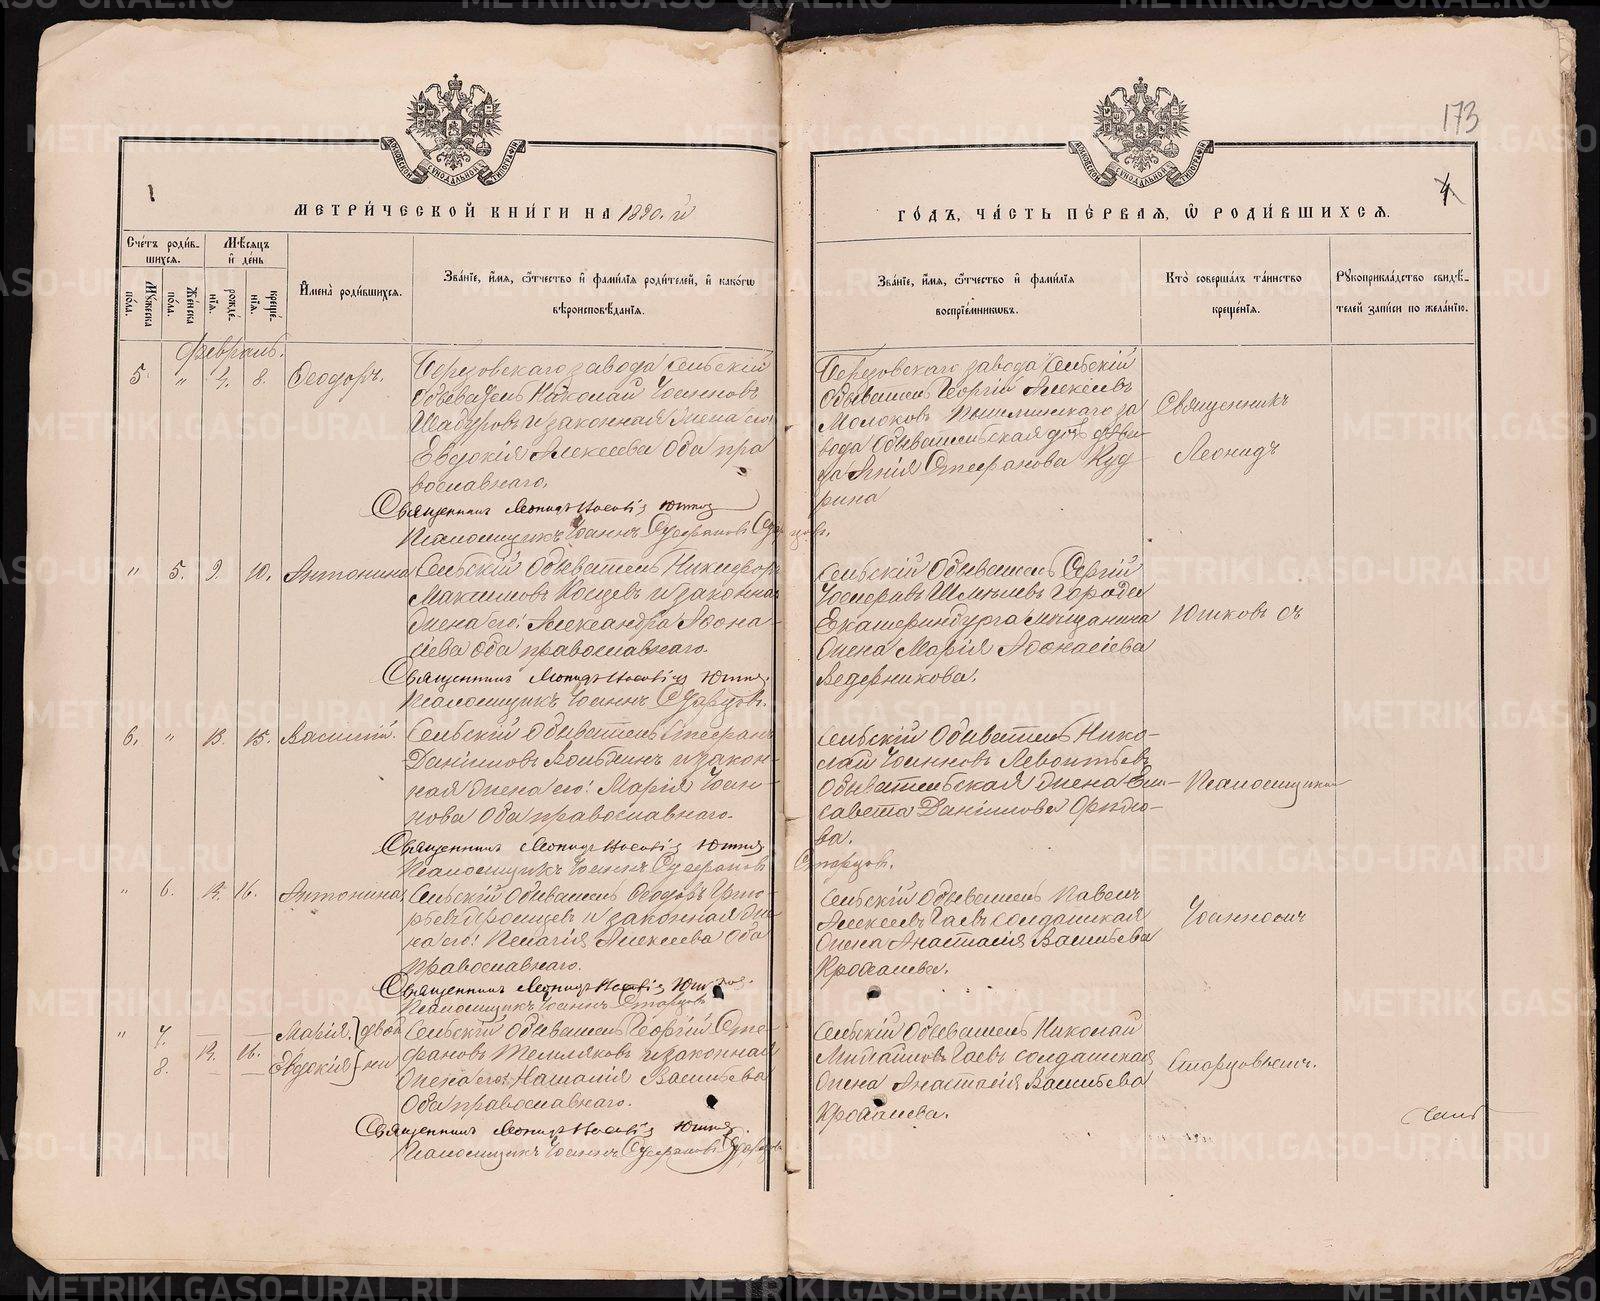 173
1
4
МЕТРИ́ЧЕСКОЙ КНИ́ГИ НА 1890.й
ГО́ДЪ, ЧА́СТЬ ПЕ́РВАЯ, Ѽ РОДИ́ВШИХСЯ.
Сче́тъ роди́в-
шихся.
Мѣ́сяцъ
и҆ де́нь
Му́жеска
по́ла.
Же́нска
по́ла.
рожде́-
нїя.
креще́-
нїя.
И҆мена̀ роди́вшихся.
Зва́нїе, и҆́мя, ѻ҆́тчество и҆ фами́лїя роди́телей, и҆ како́гѡ
вѣроисповѣ́данїя.
Зва́нїе, и҆́мя, ѻ҆́тчество и҆ фами́лїя
воспрїе́мниковъ.
Кто̀ соверша́лъ та́инство
креще́нїя.
Рꙋкоприкла́дство свидѣ́-
телей за́писи по жела́нїю.
Февраль.
5. " 8. Ѳеодоръ.
Березовскаго завода сельскій
обыватель Николай Іоанновъ
и законная жена его
Евдокія Алексѣева оба пра
вославнаго.
Священникъ Леонидъ
Псаломщикъ Іоаннъ Стефановъ Старцовъ.
Березовскаго завода сельскій
обыватель Георгій Алексѣевъ
Молоковъ Пышминскаго за
вода обывательская дочь дѣви-
ца Стефанова Куд-
рина
Священникъ
Леонидъ
" 5. 9. 10. Антонина
Сельскій обыватель Никифоръ
Максимовъ и законная
жена его Александра Аѳона-
сіева оба православнаго.
Священникъ Леонидъ
Псаломщикъ Іоаннъ Старцовъ.
Сельскій обыватель Сергій
Іосифовъ города
Екатеринбурга мѣщанина
жена Марія Аѳонасіева
Ведерникова.
Юшковъ съ
6. " 13. 15. Василій.
Сельскій обыватель Стефанъ
Даніиловъ и закон-
ная жена его Марія Іоан-
нова оба православнаго.
Священникъ Леонидъ
Псаломщикъ Іоаннъ Стефановъ
Старцовъ.
Сельскій обыватель Нико-
лай Іоанновъ Леонтьевъ
обывательская жена Ели-
савета Даніилова Орѣхо-
ва.
Псаломщикомъ
" 6. 14. 16. Антонина
Сельскій обыватель Ѳеодоръ Григо-
рьевъ и законная же-
на его Пелагія Алексѣева оба
православнаго.
Священникъ Леонидъ
Псаломщикъ Іоаннъ Старцовъ
Сельскій обыватель Павелъ
Алексѣевъ Гаевъ солдатская
жена Анастасія Васильева
Крохалева.
Іоанномъ
" 7. Марія } двой
8. 14. 16. Евдокія } ни
Сельскій обыватель Георгій Сте-
фановъ и законная
жена его Наталія Васильева
оба православнаго.
Священникъ Леонидъ
Псаломщикъ Іоаннъ Стефановъ Старцовъ
Сельскій обыватель Николай
Михайловъ Гаевъ солдатская
жена Анастасія Васильева
Крохалева.
Старцовымъ.